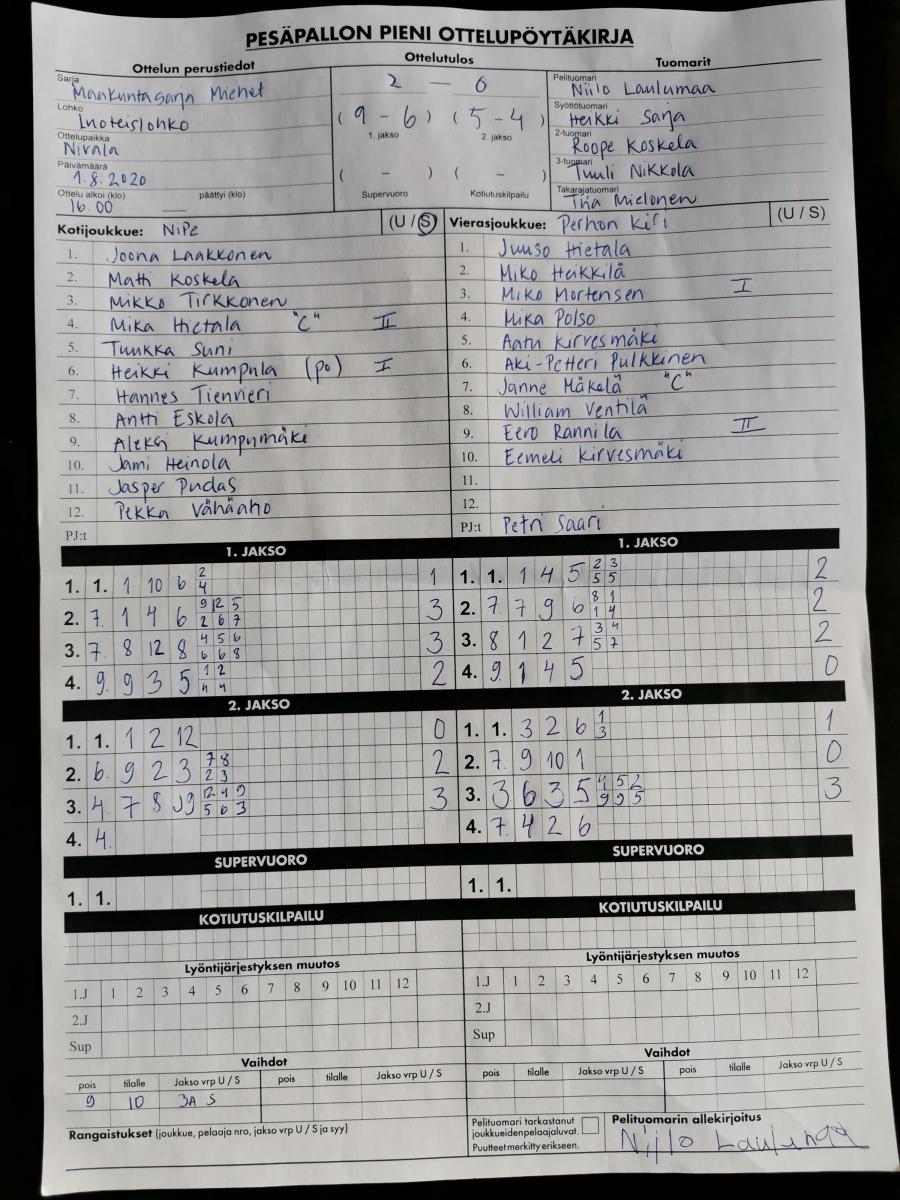 PESÄPALLON PIENI OTTELUPÖYTÄKIRJA
Ottelun perustiedot
Ottelutulos
Tuomarit
Sarja
Maakuntasarja Miehet
Lohko
Luoteislohko
Ottelupaikka
Nivala
Päivämäärä
1.8.2020
Ottelu alkoi (klo) päättyi (klo)
16.00 —
2 — 0
( 9 - 6 ) ( 5 - 4 )
1. jakso 2. jakso
( - ) ( - )
Supervuoro Kotiutuskilpailu
Pelituomari
Niilo Laulumaa
Syöttötuomari
Heikki Sarja
2-tuomari
Roope Koskela
3-tuomari
Tuuli Nikkola
Takarajatuomari
Tiia Mielonen
Kotijoukkue: NiPe (U / S)
1. Joona Laakkonen
2. Matti Koskela
3. Mikko Tirkkonen
4. Mika Hietala "C" II
5. Tuukka Suni
6. Heikki Kumpula (po) I
7. Hannes Tienvieri
8. Antti Eskola
9. Aleksi Kumpumäki
10. Jami Heinola
11. Jasper Pudas
12. Pekka Vähäaho
PJ:t
Vierasjoukkue: Perhon Kiri (U / S)
1. Juuso Hietala
2. Miko Heikkilä
3. Miko Mortensen I
4. Mika Polso
5. Aatu Kirvesmäki
6. Aki-Petteri Pulkkinen
7. Janne Mäkelä "C"
8. William Ventilä
9. Eero Rannila II
10. Eemeli Kirvesmäki
11.
12.
PJ:t Petri Saari
1. JAKSO
1. 1. 1 10 6 2 1
4
2. 7. 1 4 6 9 12 5 3
2 6 7
3. 7. 8 12 8 4 5 6 3
6 6 8
4. 9. 9 3 5 1 2 2
4 4
1. JAKSO
1. 1. 1 4 5 2 3 2
5 5
2. 7. 7 9 6 8 1 2
1 4
3. 8 1 2 7 3 4 2
5 7
4. 9. 1 4 5 0
2. JAKSO
1. 1. 1 2 12 0
2. 6. 9 2 3 7 8 2
2 3
3. 4. 7 8 12 4 9 3
5 6 3
4. 4.
2. JAKSO
1. 1. 3 2 6 1 1
3
2. 7. 9 10 1 0
3. 3 6 3 5 4 5 2 3
9 5
4. 7. 4 2 6
SUPERVUORO
1. 1.
SUPERVUORO
1. 1.
KOTIUTUSKILPAILU
KOTIUTUSKILPAILU
Lyöntijärjestyksen muutos
1.J 1 2 3 4 5 6 7 8 9 10 11 12
2.J
Sup
Lyöntijärjestyksen muutos
1.J 1 2 3 4 5 6 7 8 9 10 11 12
2.J
Sup
Vaihdot
pois tilalle Jakso vrp U / S pois tilalle Jakso vrp U / S
9 10 3A S
Vaihdot
pois tilalle Jakso vrp U / S pois tilalle Jakso vrp U / S
Rangaistukset (joukkue, pelaaja nro, jakso vrp U / S ja syy)
Pelituomari tarkastanut
joukkueidenpelaajaluvat.
Puutteet merkitty erikseen.
Pelituomarin allekirjoitus
Niilo Laulumaa